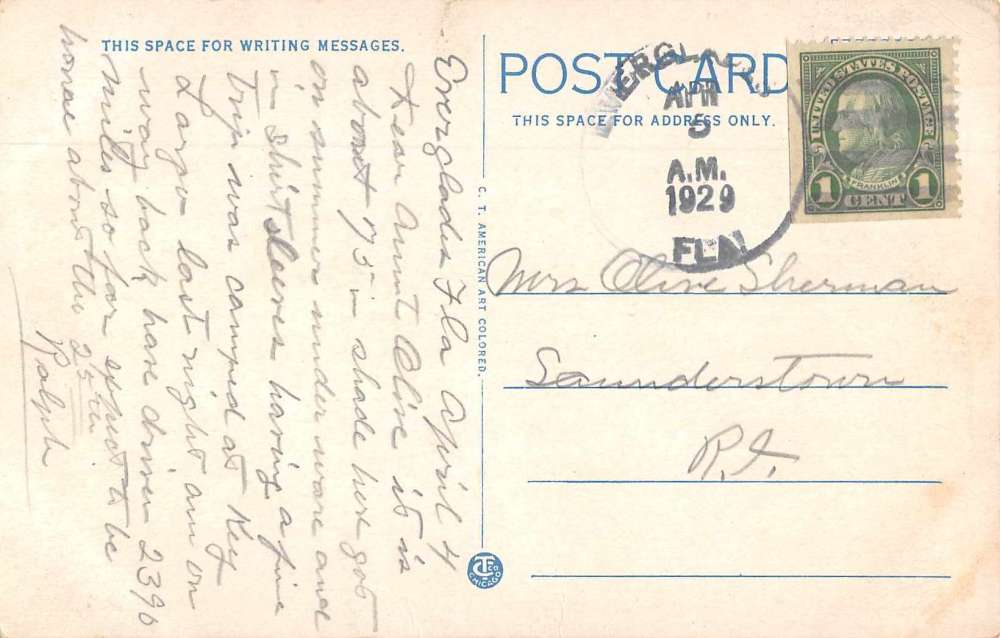 THIS SPACE FOR WRITING MESSAGES.
Everglades Fla April 4
Dear Aunt Olive it is
about 75 in shade here got
on summer under ware and
in Shirt sleeves having a fine
Trip was camped at Key
Largo last night am on
way back have driven 2390
Miles so far expect to be
home about the 25th
Ralph
C. T. AMERICAN ART COLORED.
CT CO CHICAGO
POST CARD
THIS SPACE FOR ADDRESS ONLY.
EVERGLADES
APR
5
A.M.
1929
FLA
UNITED STATES POSTAGE
FRANKLIN
1 CENT 1
Mrs Olive Sherman
Saunderstown
R.I.